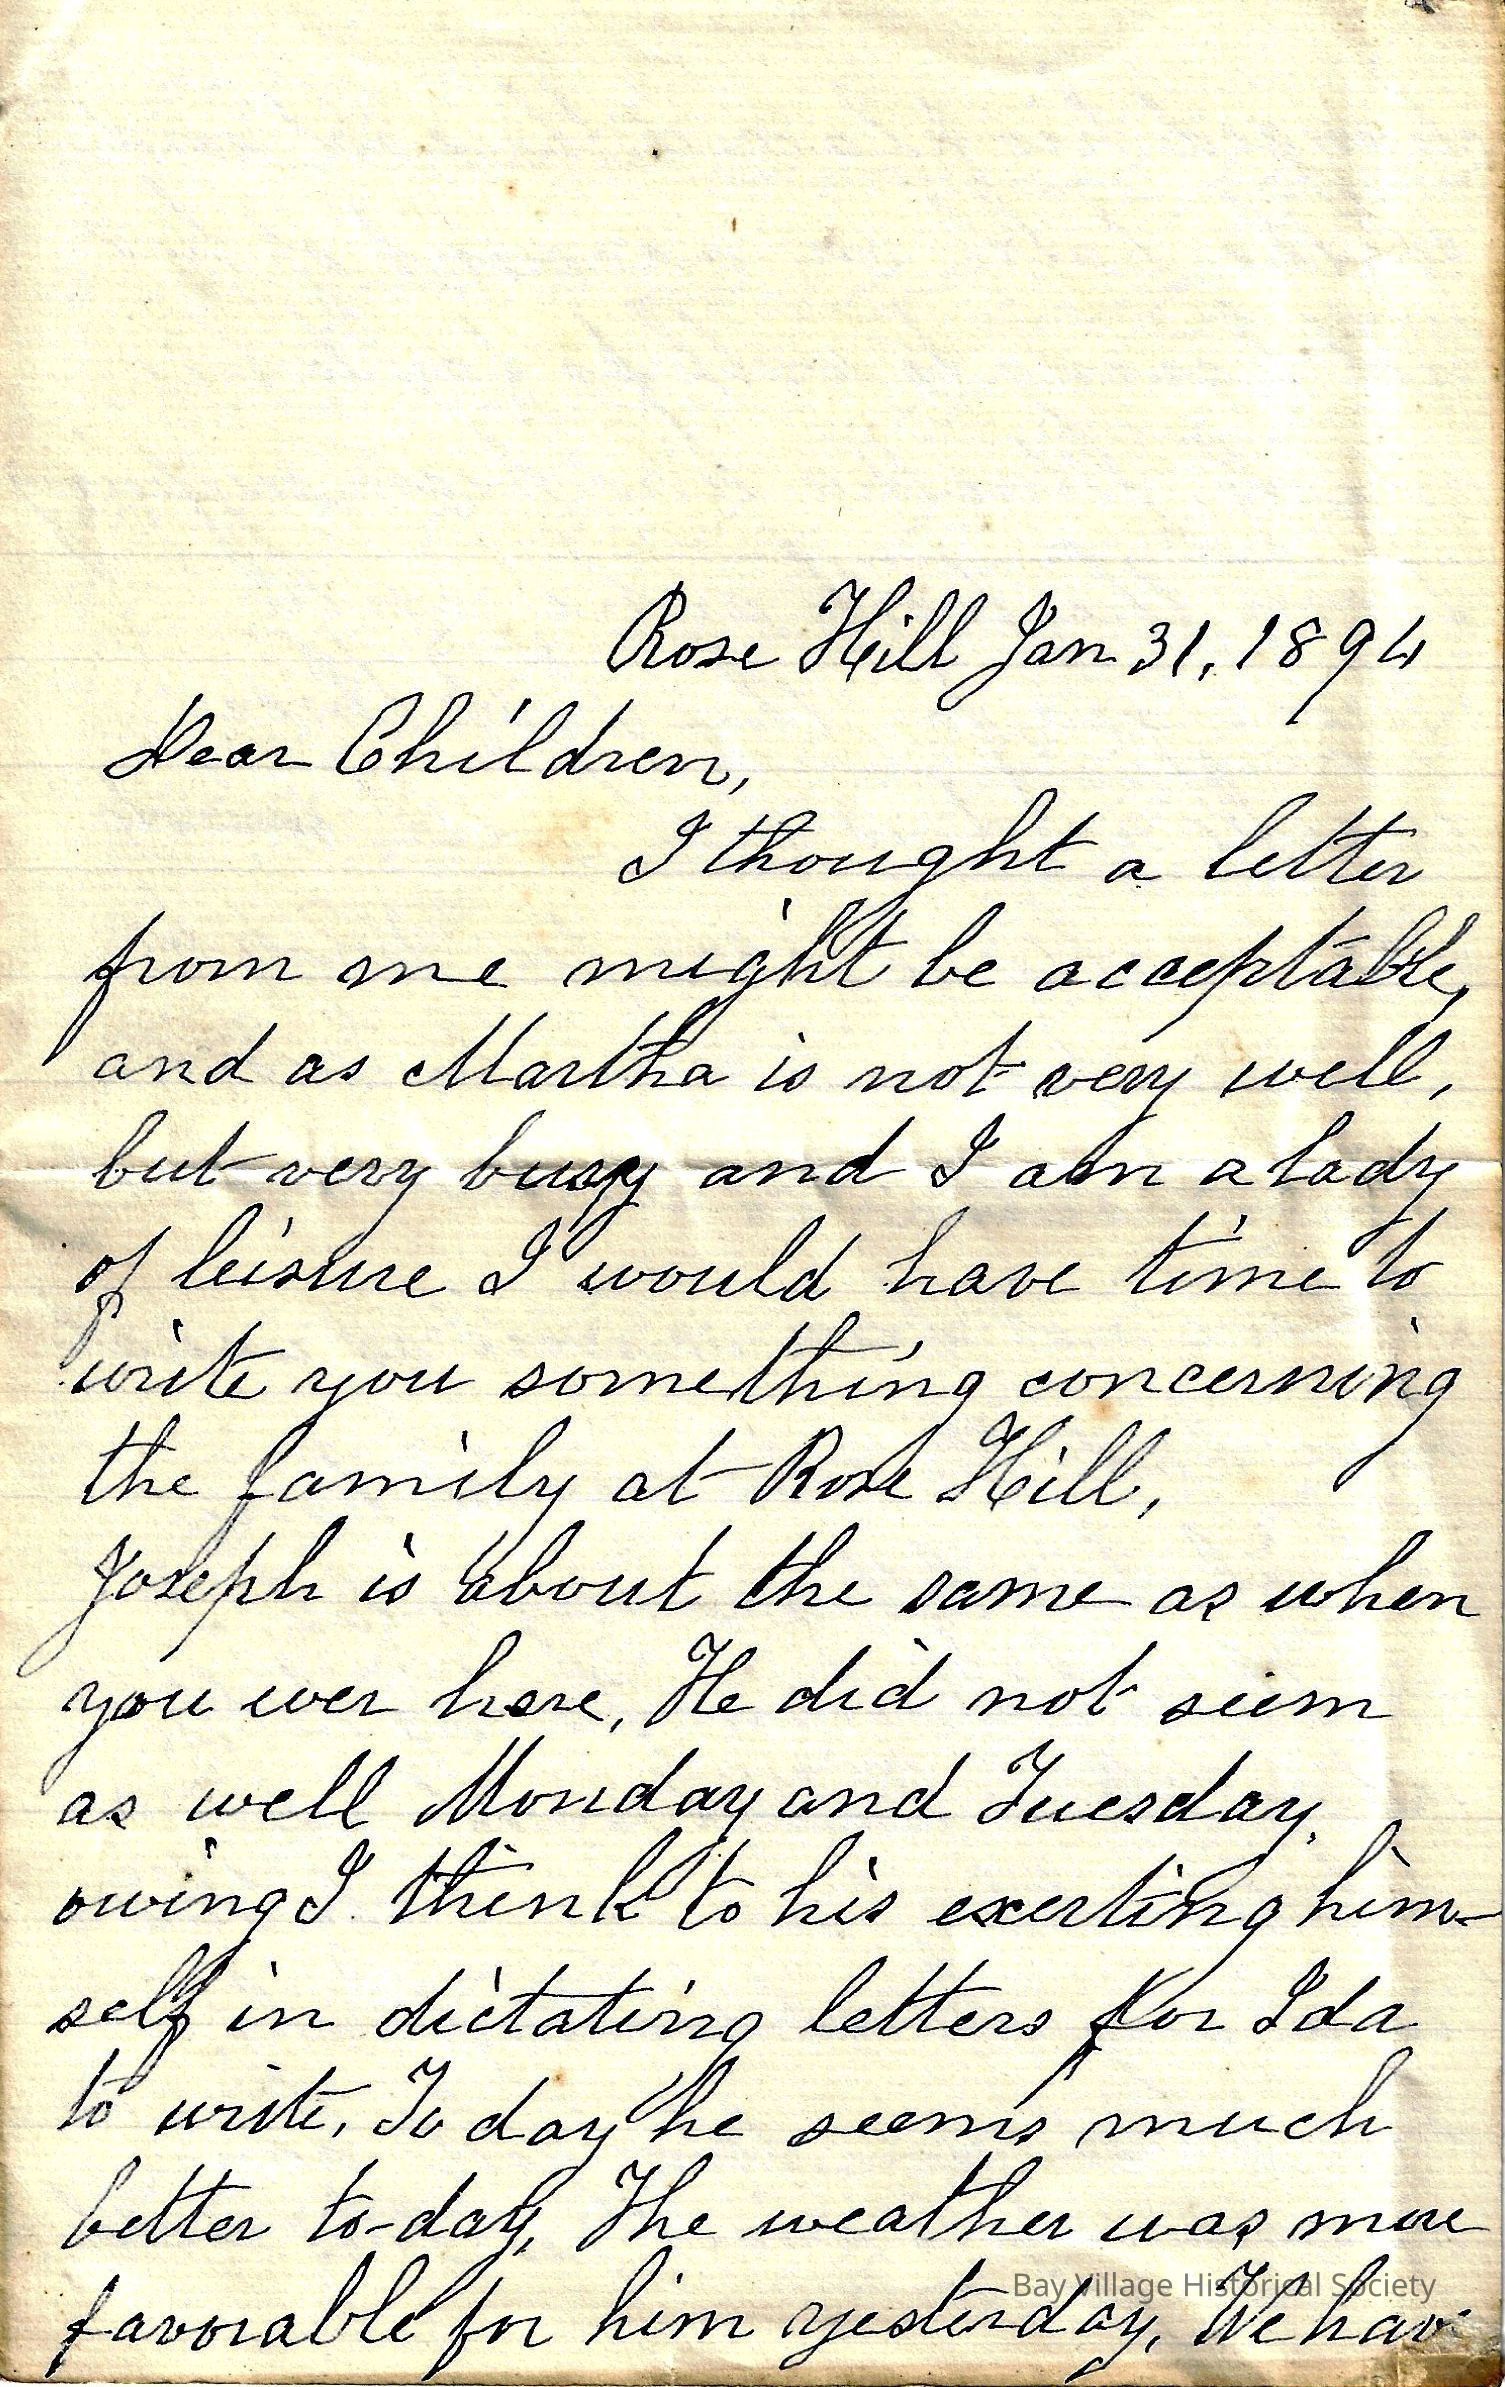 Rose Hill Jan 31, 1894
Dear Children,
I thought a letter
from me might be acceptable,
and as Martha is not very well,
but very busy and I am a lady
of leisure I would have time to
write you something concerning
the family at Rose Hill,
Joseph is about the same as when
you wer here, He did not seem
as well Monday and Tuesday,
owing I think to his exerting him-
self in dictating letters for Ida
to write. To day he seems much
better to-day, The weather was more
favorable for him yesterday, We hav
Bay Village Historical Society